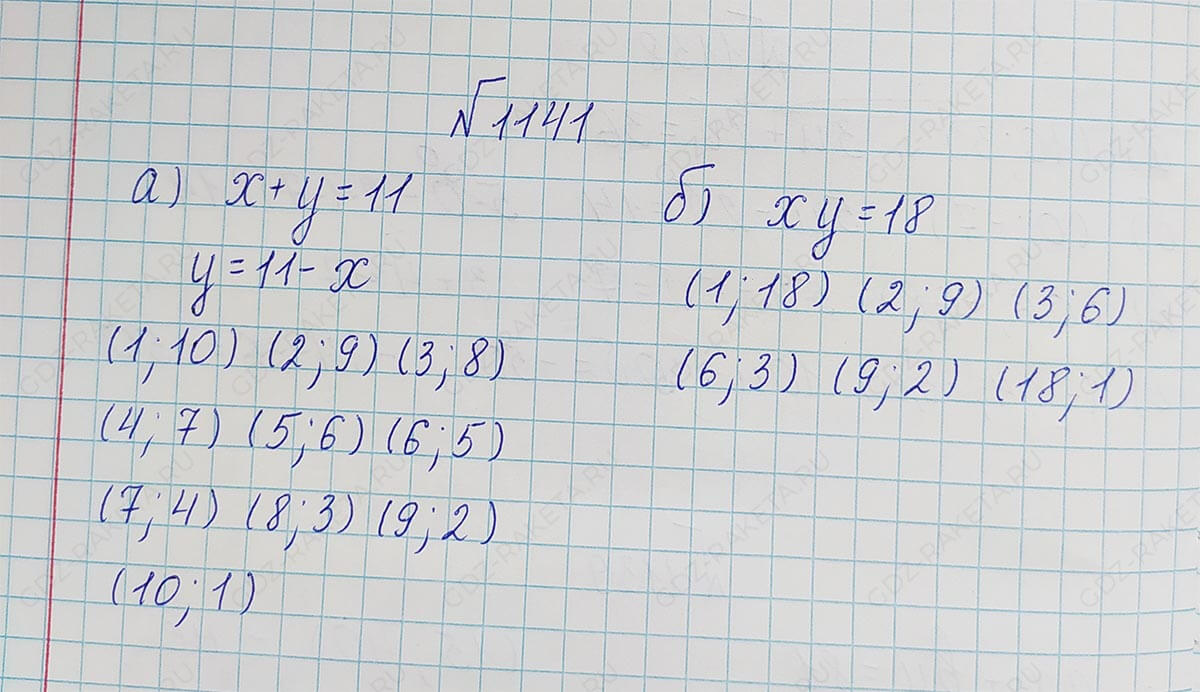 №1141
а) x+y=11
y=11-x
(1;10) (2;9) (3;8)
(4;7) (5;6) (6;5)
(7;4) (8;3) (9;2)
(10;1)
б) xy=18
(1;18) (2;9) (3;6)
(6;3) (9;2) (18;1)
GDZ-RAKETA.RU